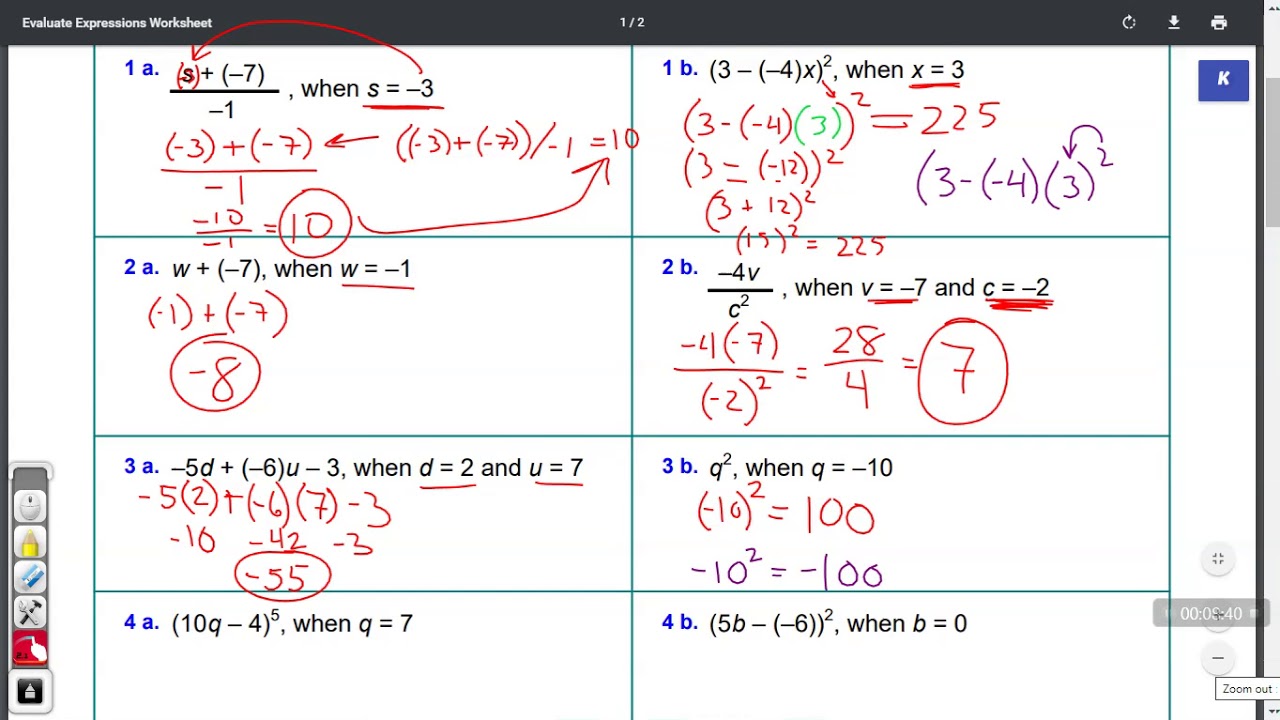 Evaluate Expressions Worksheet
1 / 2
K
1 a. (s) + (–7)
–1
, when s = –3
(-3) + (-7) ← ((-3)+(-7))/-1 = 10
-1
-10
-1
= 10
1 b. (3 – (–4)x)², when x = 3
(3-(-4)(3))² = 225
(3 - (-12))²
(3 + 12)²
(15)² = 225
(3-(-4)(3)²
2 a. w + (–7), when w = –1
(-1) + (-7)
-8
2 b. –4v
c²
, when v = –7 and c = –2
-4(-7)
(-2)²
= 28
4
= 7
3 a. –5d + (–6)u – 3, when d = 2 and u = 7
-5(2)+(-6)(7)-3
-10 -42 -3
-55
3 b. q², when q = –10
(-10)² = 100
-10² = -100
4 a. (10q – 4)⁵, when q = 7
4 b. (5b – (–6))², when b = 0
Zoom out